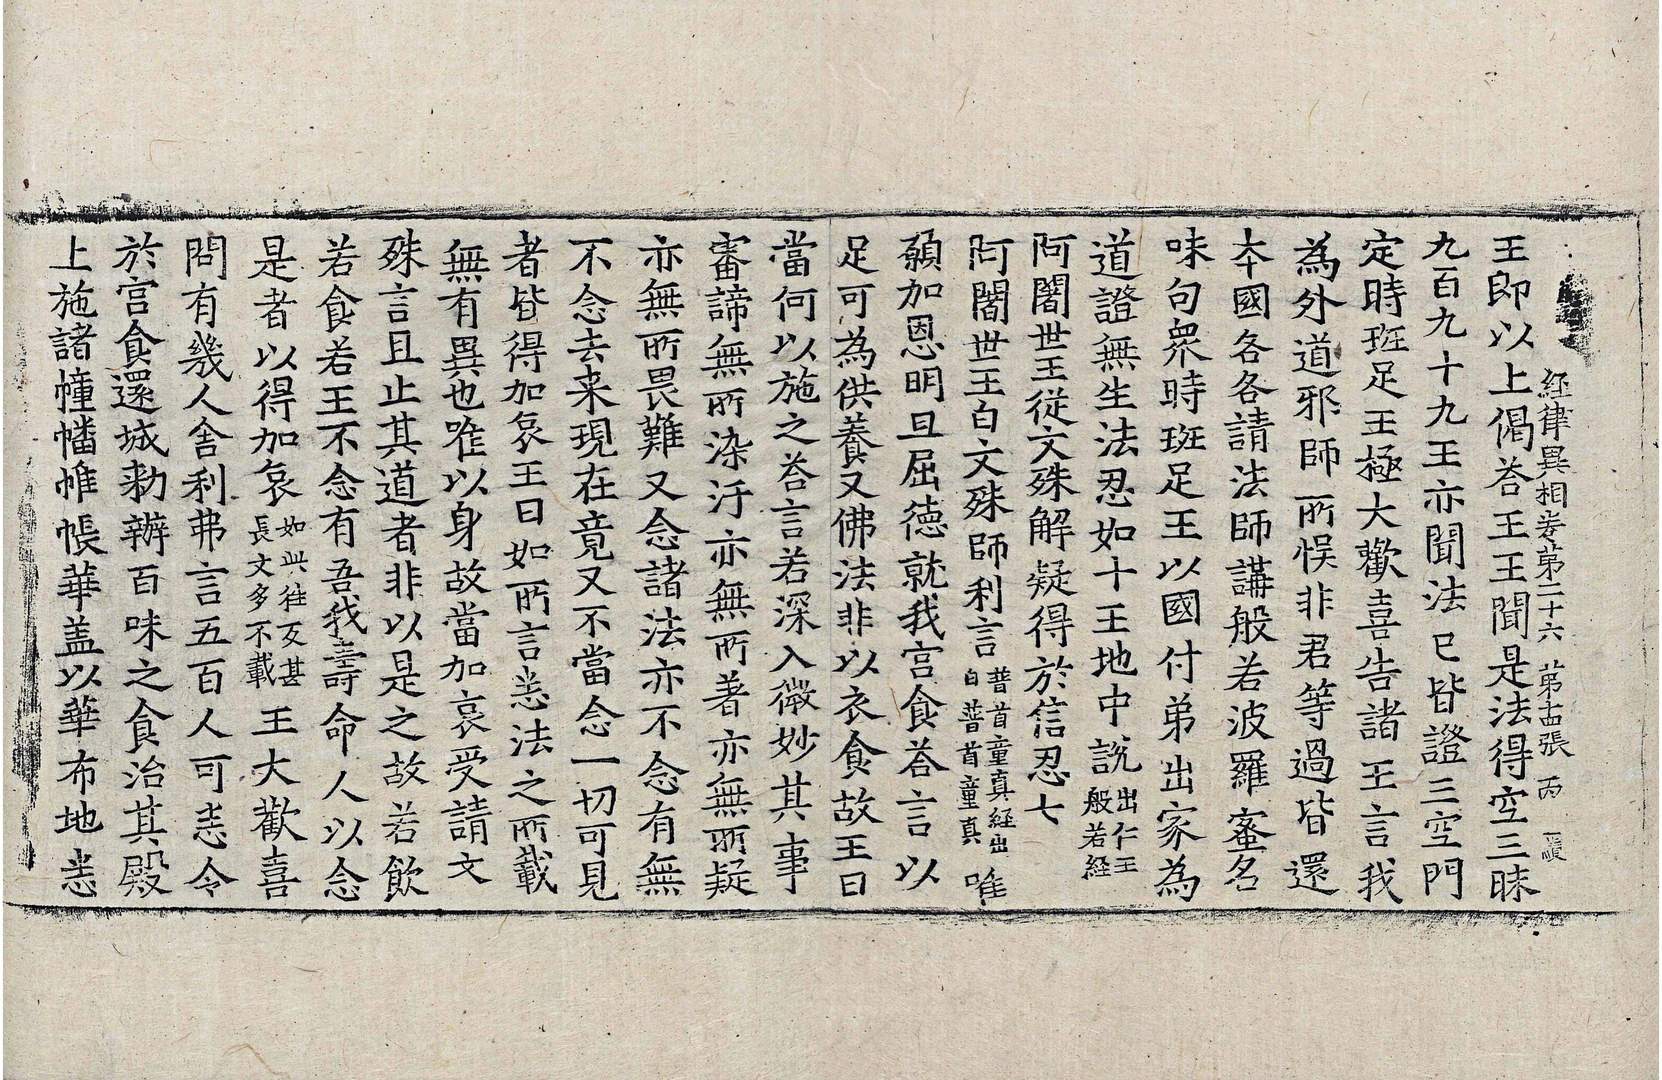 経律異相卷第二十六 第十四張 丙
王即以上偈荅王王聞是法得空三昧
九百九十九王亦聞法已皆證三空門
定時班足王極大歡喜告諸王言我
為外道邪師所悮非君等過皆還
夲國各各請法師講般若波羅蜜名
味句衆時班足王以國付弟出家為
道證無生法忍如十王地中說出仁王般若経
阿闍世王従文殊解疑得於信忍七
阿闍世王白文殊師利言普首童真経出自普首童真唯
願加恩明旦屈德就我宫食荅言以
足可為供養又佛法非以衣食故王曰
當何以施之荅言若深入微妙其事
審諦無所染汙亦無所著亦無所疑
亦無所畏難又念諸法亦不念有無
不念去来現在竟又不當念一切可見
者皆得加哀王曰如所言悉法之所載
無有異也唯以身故當加哀受請文
殊言且止其道者非以是之故若飲
若食若王不念有吾我壽命人以念
是者以得加哀如此往反甚長文多不載王大歡喜
問有幾人舍利弗言五百人可悉令
於宫食還城勑辦百味之食治其殿
上施諸幢幡帷帳華盖以華布地悉